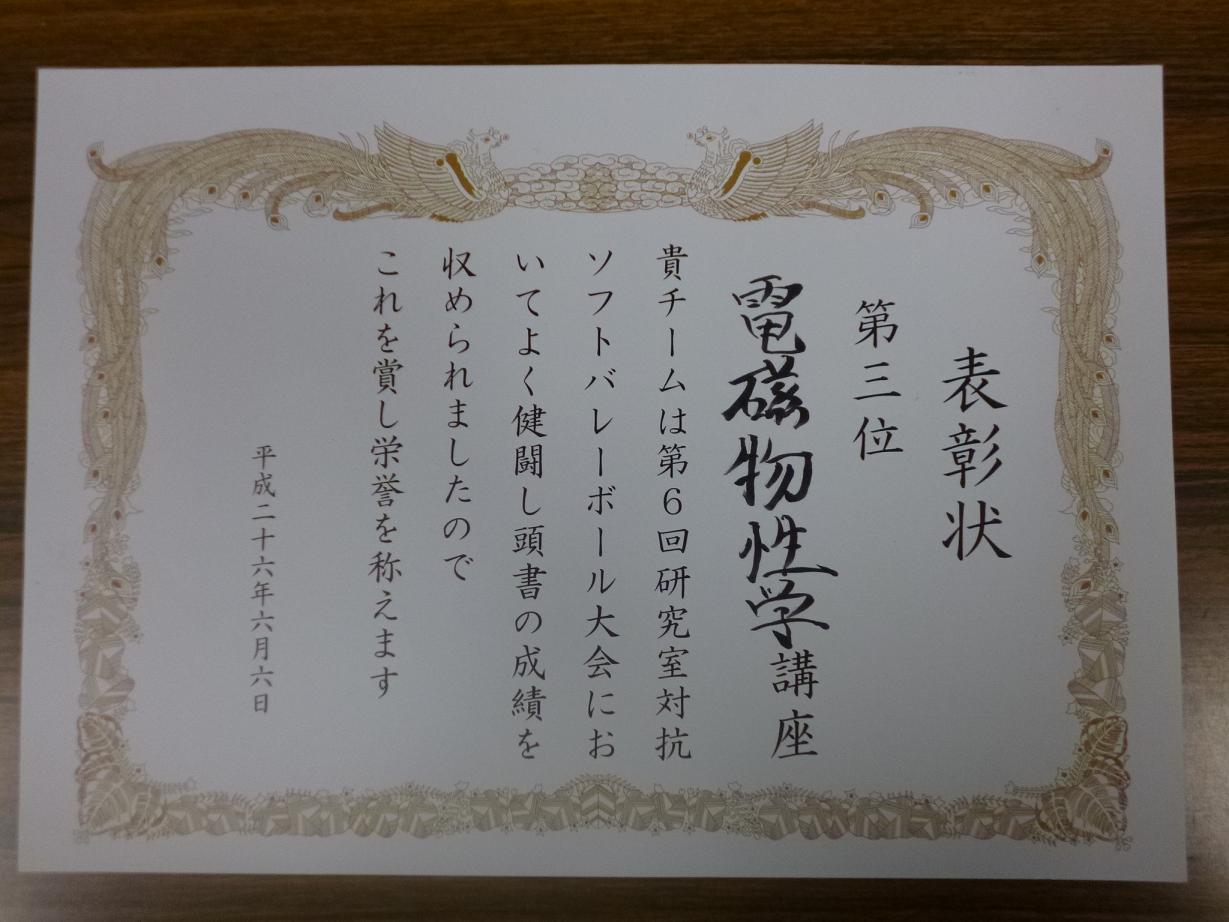 表彰状
第三位
電磁物性学講座
貴チームは第6回研究室対抗
ソフトバレーボール大会にお
いてよく健闘し頭書の成績を
収められましたので
これを賞し栄誉を称えます
平成二十六年六月六日